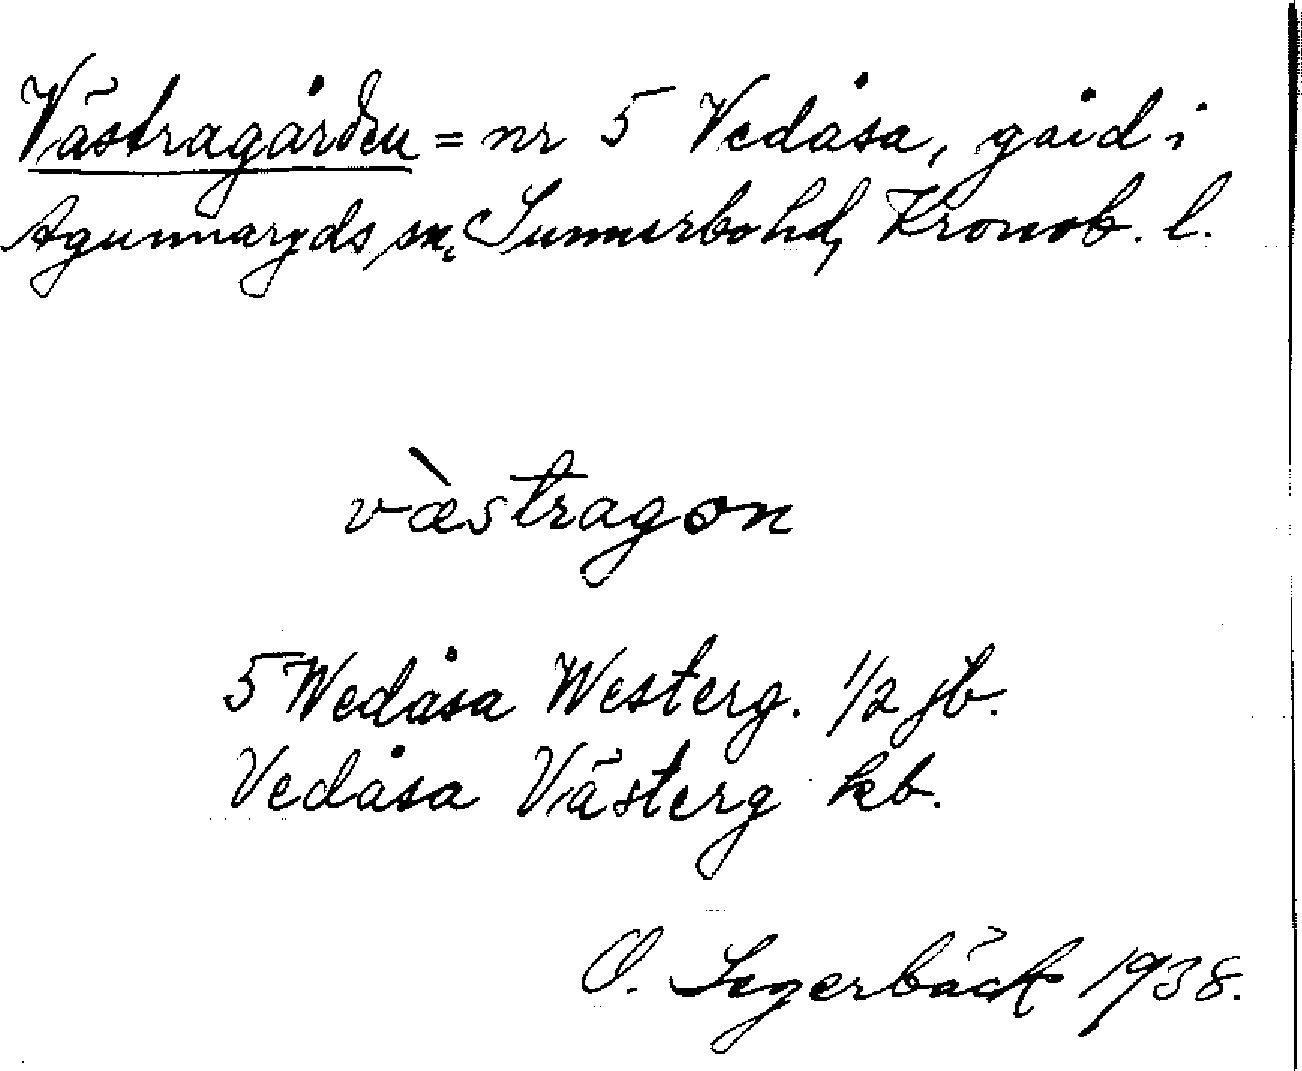 Västragården = nr 5 Vedåsa, gård i
Agunnaryds sn, Sunnerbo hd, Kronob. l.
vàestragon
5 Wedåsa Westerg. 1/2 jb.
Vedåsa Västerg kb.
O. Segerbäck 1938.